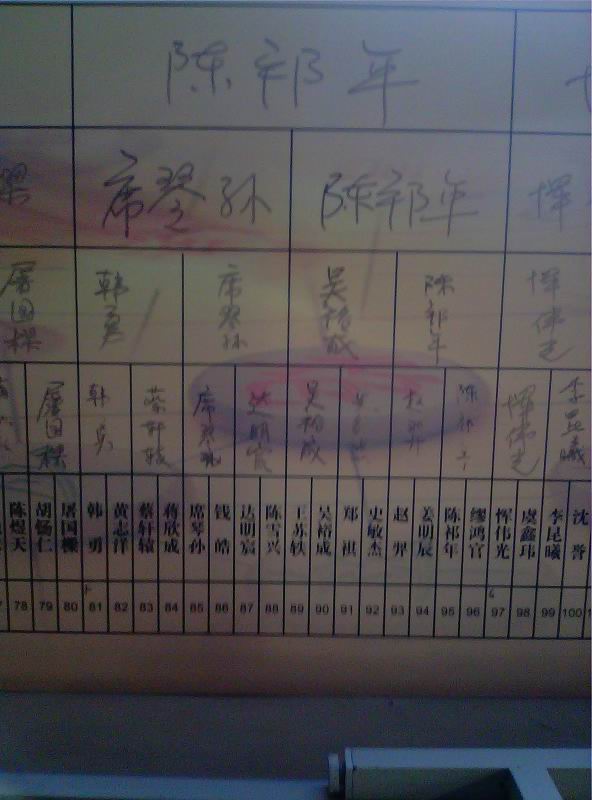 陈祁年
席琴孙 陈祁年 恽
屠国樑 韩勇 席琴孙 吴裕成 陈祁年 恽伟光
屠国樑 韩勇 蔡轩辕 席琴孙 达明宸 吴裕成 赵羿 陈祁年 恽伟光 李昆曦
陈煜天 胡畅仁 屠国樑 韩勇 黄志洋 蔡轩辕 蒋欣成 席琴孙 钱皓 达明宸 陈雪兴 王苏轶 吴裕成 郑祺 史敏杰 赵羿 姜明辰 陈祁年 缪鸿官 恽伟光 虞鑫玮 李昆曦 沈誉
78 79 80 81 82 83 84 85 86 87 88 89 90 91 92 93 94 95 96 97 98 99 100